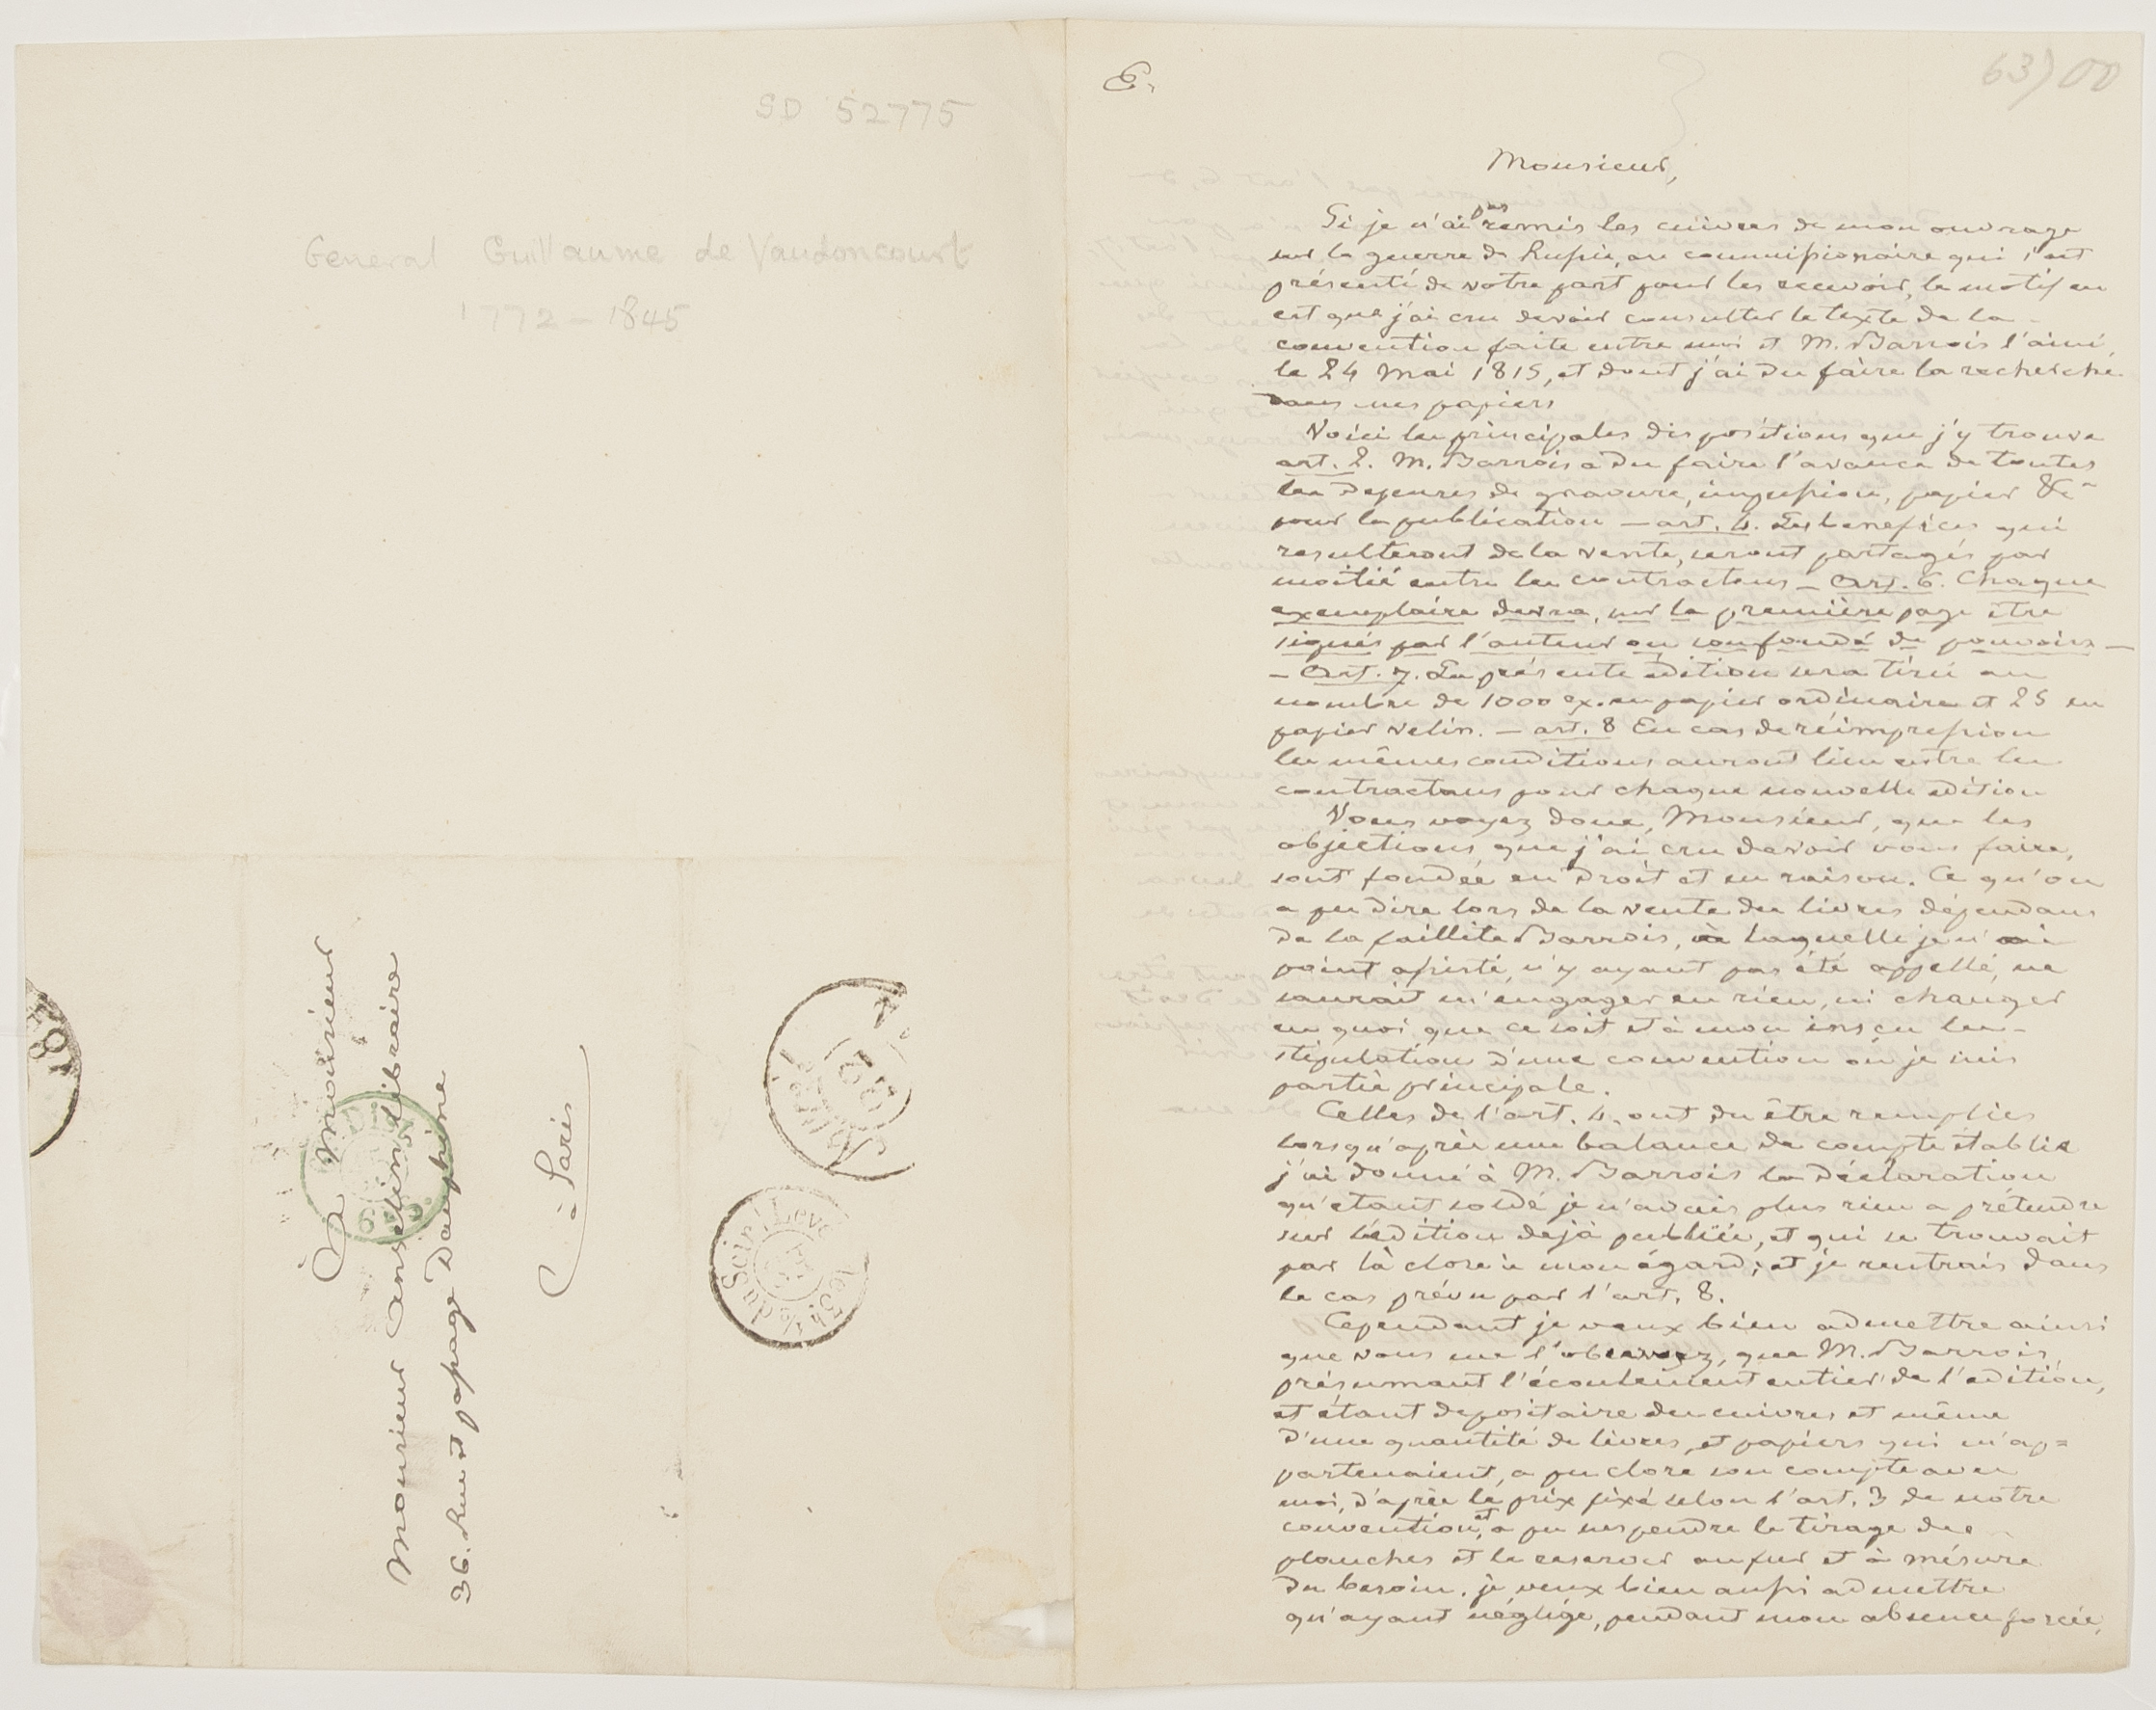 SD 52775
General Guillaume de Vaudoncourt
1772 – 1845
A Monsieur
Monsieur Anselin Libraire
36. Rue et passage Dauphine
à Paris
Levé
du Soir
E.
63) 00
Monsieur,
Si je n'ai pas remis les cuivres de mon ouvrage
sur la guerre de Russie, au commissionaire qui s'est
présenté de votre part pour les recevoir, le motif en
est que j'ai cru devoir consulter le texte de la
convention faite entre moi et M. Barrois l'ainé,
le 24 Mai 1815, et dont j'ai du faire la recherche
dans mes papiers
Voici les principales dispositions que j'y trouve
art. 2. M. Barrois a du faire l'avance de toutes
les depenses de gravure, impression, papier &c
pour la publication — art. 4. Les benefices qui
resulteront de la vente, seront partagés par
moitié entre les contractans — Art. 6. Chaque
exemplaire devra, sur la première page être
signés par l'auteur ou son fondé de pouvoirs —
— Art. 7. La présente édition sera tirée au
nombre de 1000 ex. en papier ordinaire et 25 en
papier velin. — art. 8 En cas de réimpression
les mêmes conditions auront lieu entre les
contractans pour chaque nouvelle édition
Vous voyez donc, Monsieur, que les
objections que j'ai cru devoir vous faire,
sont fondée en droit et en raison. Ce qu'on
a pu dire lors de la vente des livres dépendans
de la faillite Barrois, à laquelle je n'ai
point assisté, n'y ayant pas été appellé, ne
saurait m'engager en rien, ni changer
en quoi que ce soit et à mon insçu les
stipulation d'une convention où je suis
partie principale.
Celles de l'art. 4. ont du être remplies
lorsqu'après une balance de compte établie
j'ai donné à M. Barrois la déclaration
qu'étant soldé je n'avais plus rien a prétendre
sur l'édition dejà publiée, et qui se trouvait
par là close à mon égard; et je rentrais dans
le cas prévu par l'art. 8.
Cependant je veux bien admettre ainsi
que vous me l'observez, que M. Barrois,
présumant l'écoulement entier de l'edition,
et étant depositaire des cuivres et même
d'une quantité de livres, et papiers qui m'ap=
partenaient, a pu clore son compte avec
moi, d'après le prix fixé selon l'art. 3 de notre
convention, et a pu suspendre le tirage des
planches et le reserver au fur et à mésure
du besoin. je veux bien aussi admettre
qu'ayant négligé, pendant mon absence forcée,